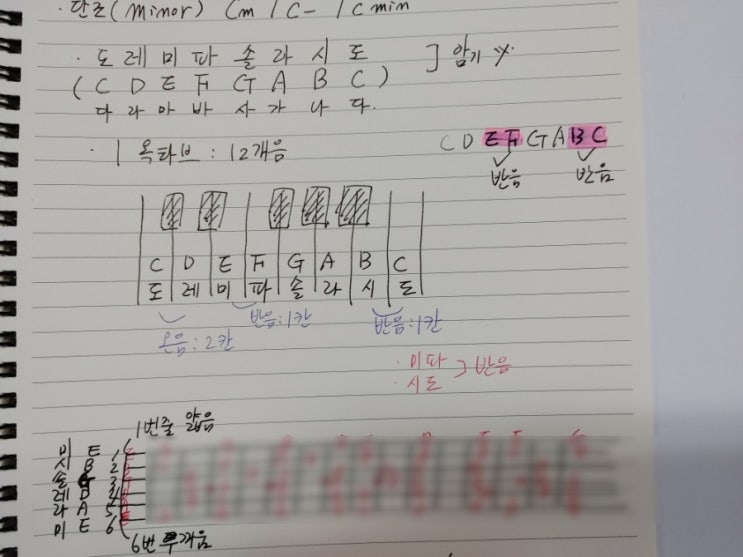 · 단조(Minor) Cm / C- / C min
· 도 레 미 파 솔 라 시 도 ] 암기
( C D E F G A B C )
다 라 마 바 사 가 나 다.
· 1 옥타브 : 12개음
C D E F G A B C
반음 반음
C D E F G A B C
도 레 미 파 솔 라 시 도
온음:2칸 반음:1칸 반음:1칸
· 미파
· 시도 ] 반음
1번줄 얇음
미 E 1
시 B 2
솔 G 3
레 D 4
라 A 5
미 E 6
6번